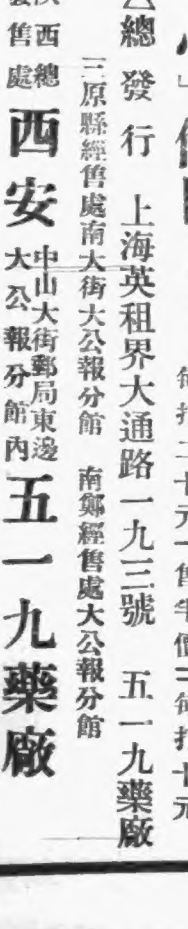 每打二十元 售半價 每打十元
總發行 上海英租界大通路一九三號 五一九藥廠
三原縣經售處南大街大公報分館 南鄭經售處大公報分館
西總
售處
西安
中山大街郵局東邊
大公報分館內
五一九藥廠